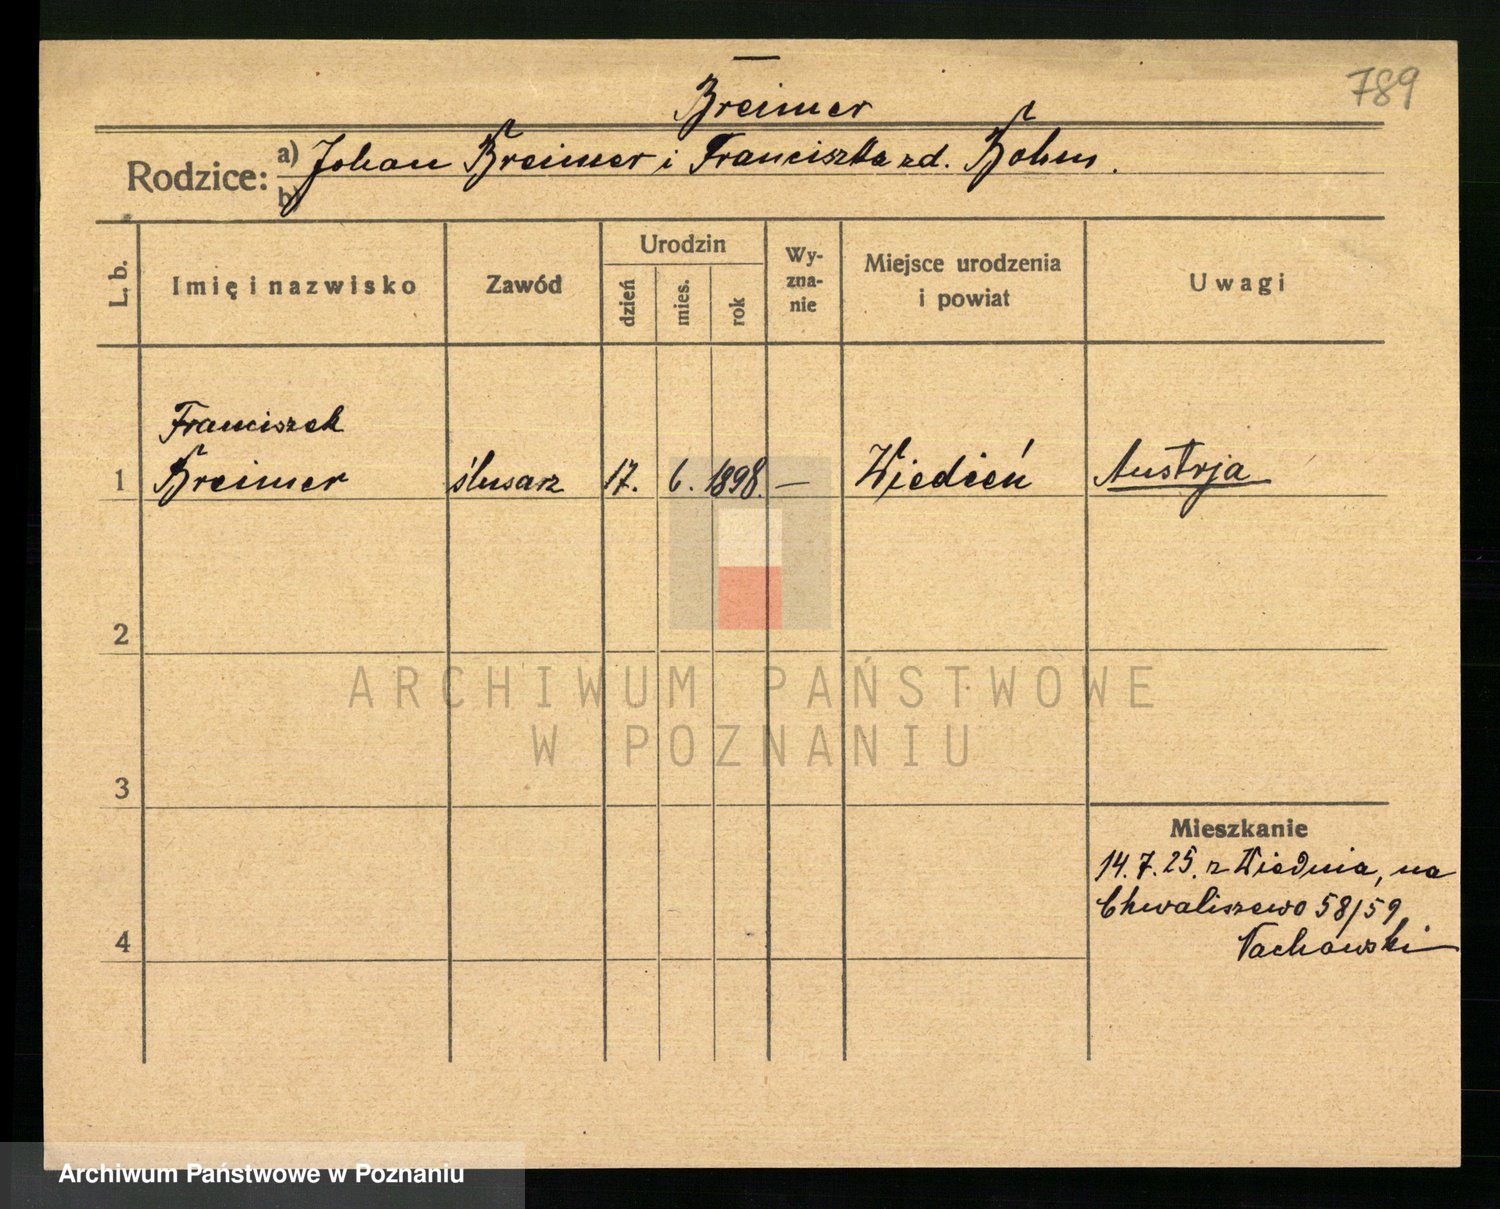 789
Breimer
Rodzice: a) Johan Breimer i Franciszka zd. Böhm.
b)
L. b. Imię i nazwisko Zawód Urodzin dzień mies. rok Wyznanie Miejsce urodzenia i powiat Uwagi
Franciszek
1 Breimer ślusarz 17. 6. 1898. — Wiedeń Austrja
2
ARCHIWUM PAŃSTWOWE
W POZNANIU
3
Mieszkanie
14.7.25. z Wiednia, na
Chwaliszewo 58/59
4
Archiwum Państwowe w Poznaniu